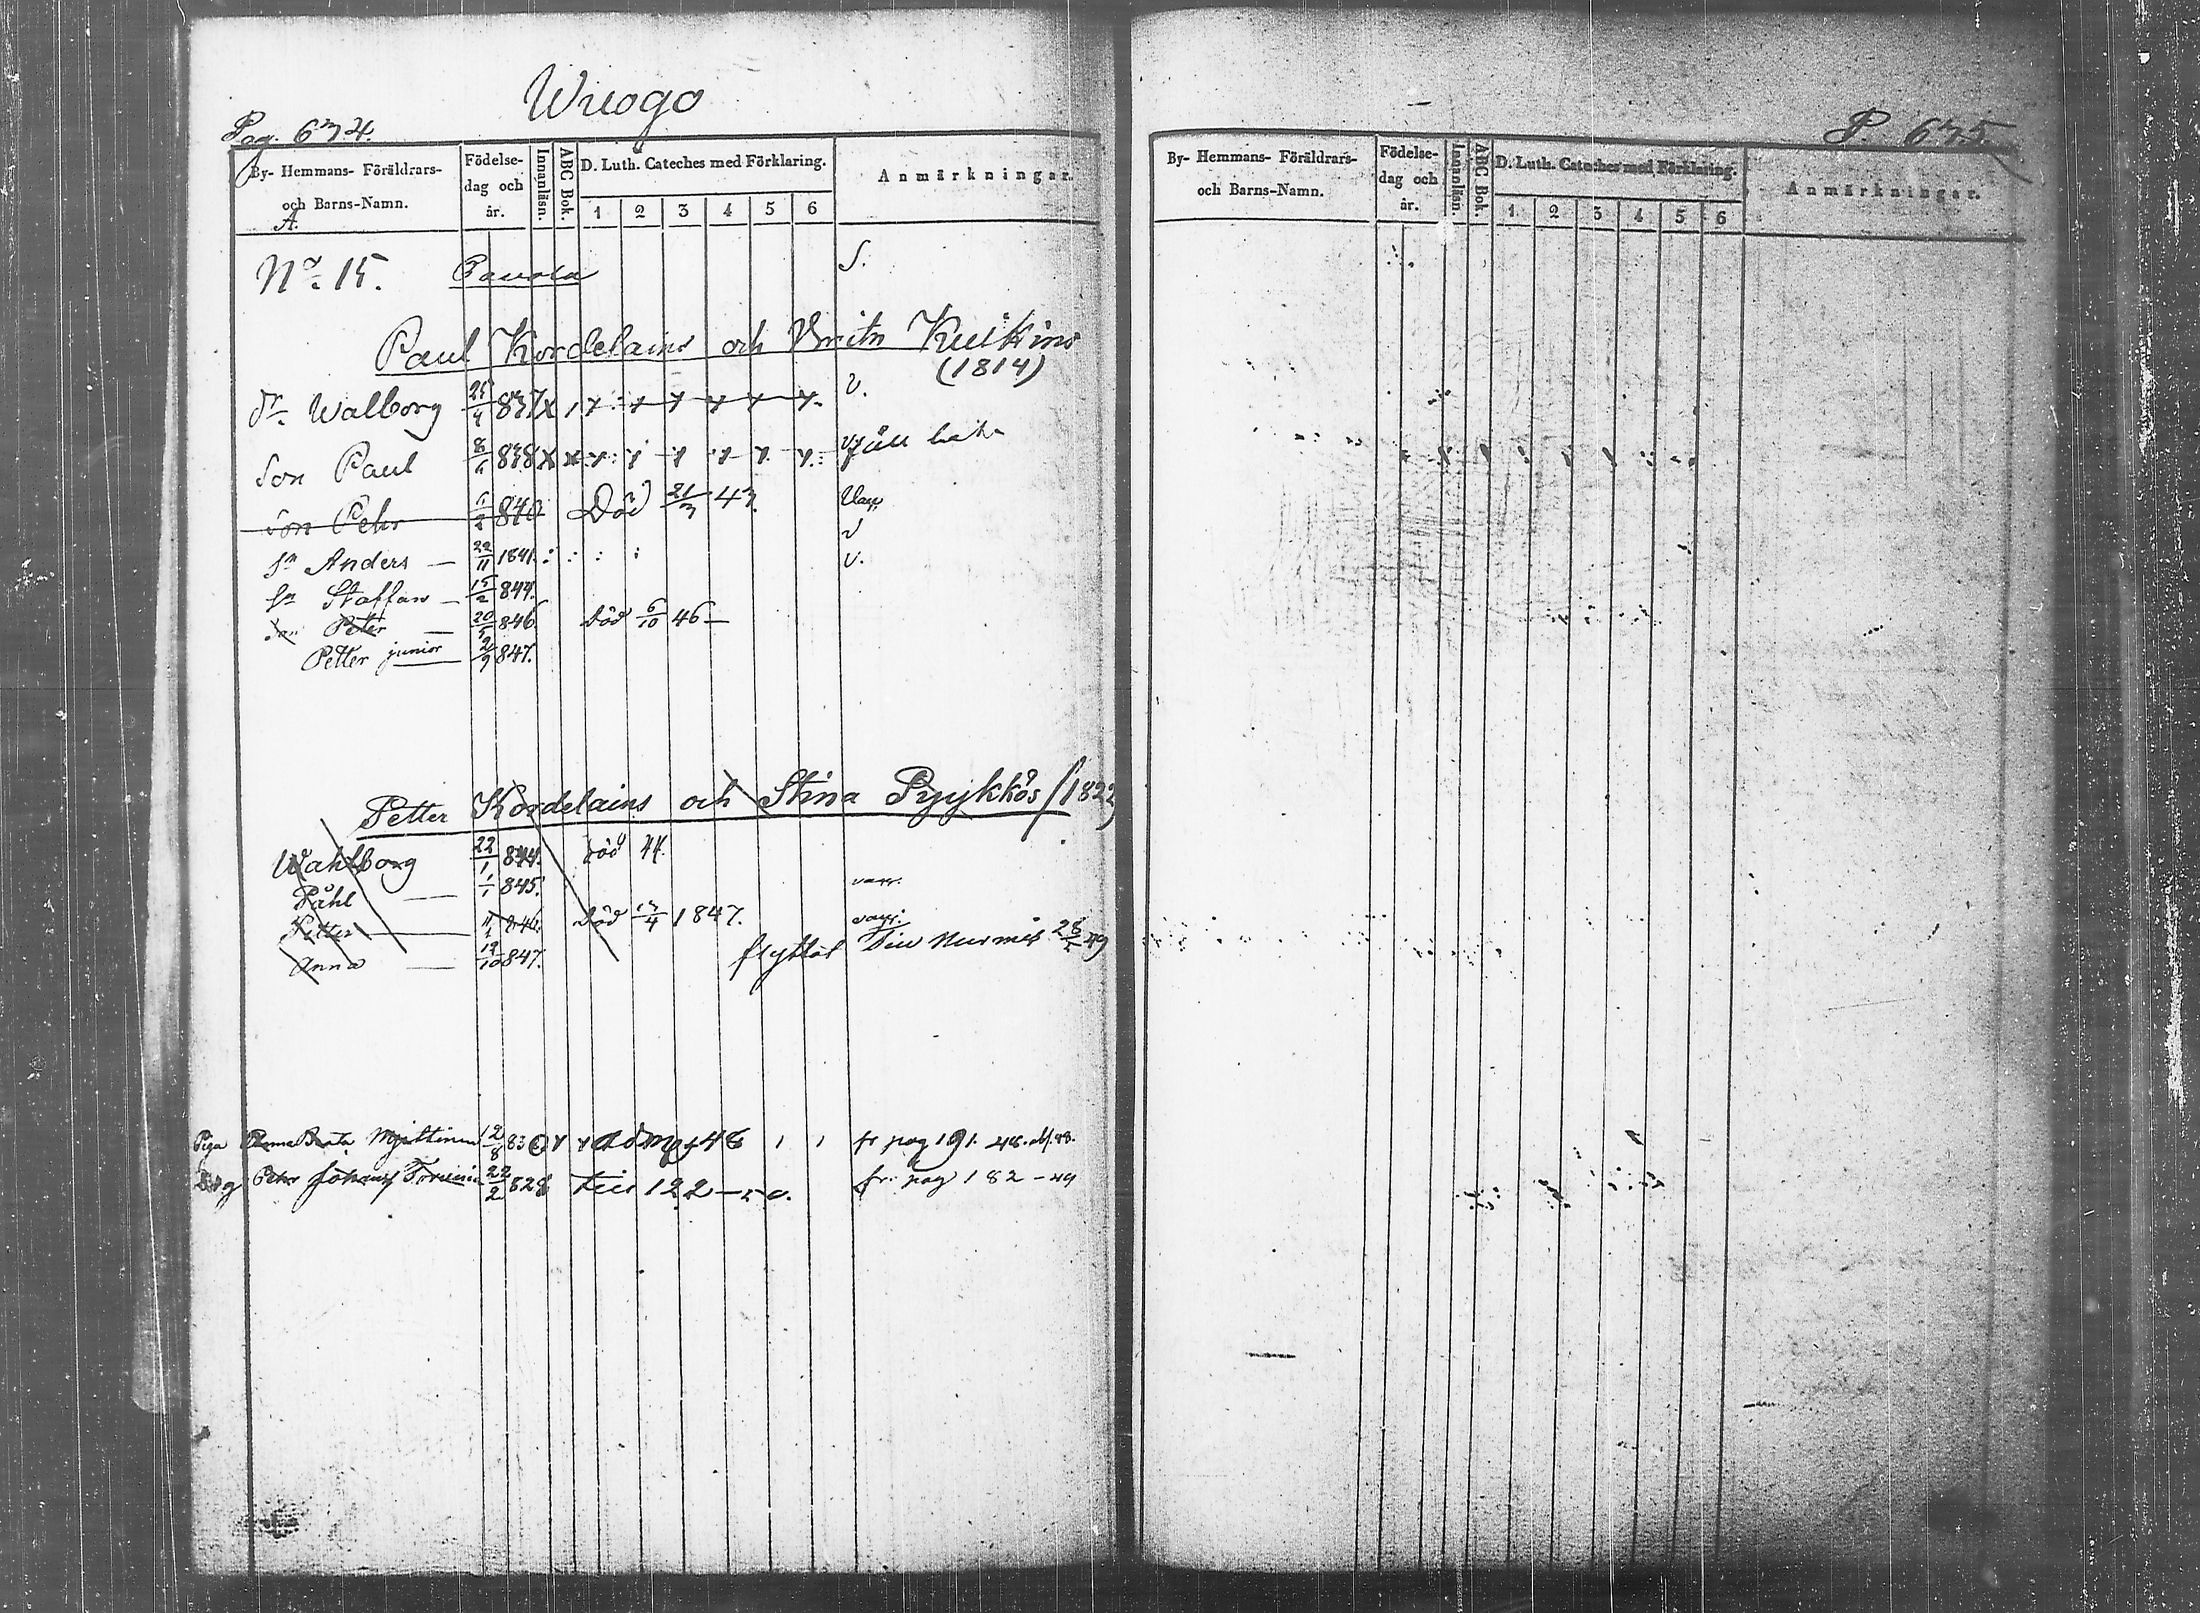 Wuogo
Pag. 674.
By- Hemmans- Föräldrars- och Barns-Namn.
Födelse- dag och år.
Innanläsn.
ABC Bok.
D. Luth. Cateches med Förklaring.
1 2 3 4 5 6
Anmärkningar.
A.
No 15. Pauola S.
Paul Kordelains och Brita Kulkins
(1814)
dr Walborg 25/4 837 v.
Son Paul 8/1 838
Son Pehr 1/2 840 Död 21/3 43. Vacc.
sn Anders — 22/11 1841. v
sn Staffan — 15/2 844. v.
son Peter — 20/5 846 Död 6/10 46 —
Petter junior 2/9 847.
Petter Kordelains och Stina Pyykkös (1822)
Wahlborg 22/1 844. död 44.
Påhl — 1/1 845. vacc.
Petter — 846. Död 13/4 1847. vacc.
Anna — 19/10 847. flyttat Till Nurmis 28/5 49
Piga Anna Beata 12/8 830 admg 48 fr pag 191. 48.
Drg Pehr Johansf 22/2 828 till 122 — 50. fr. pag 182 – 49
P. 675.
By- Hemmans- Föräldrars- och Barns-Namn.
Födelse- dag och år.
Innanläsn.
ABC Bok.
D. Luth. Cateches med Förklaring.
1 2 3 4 5 6
Anmärkningar.